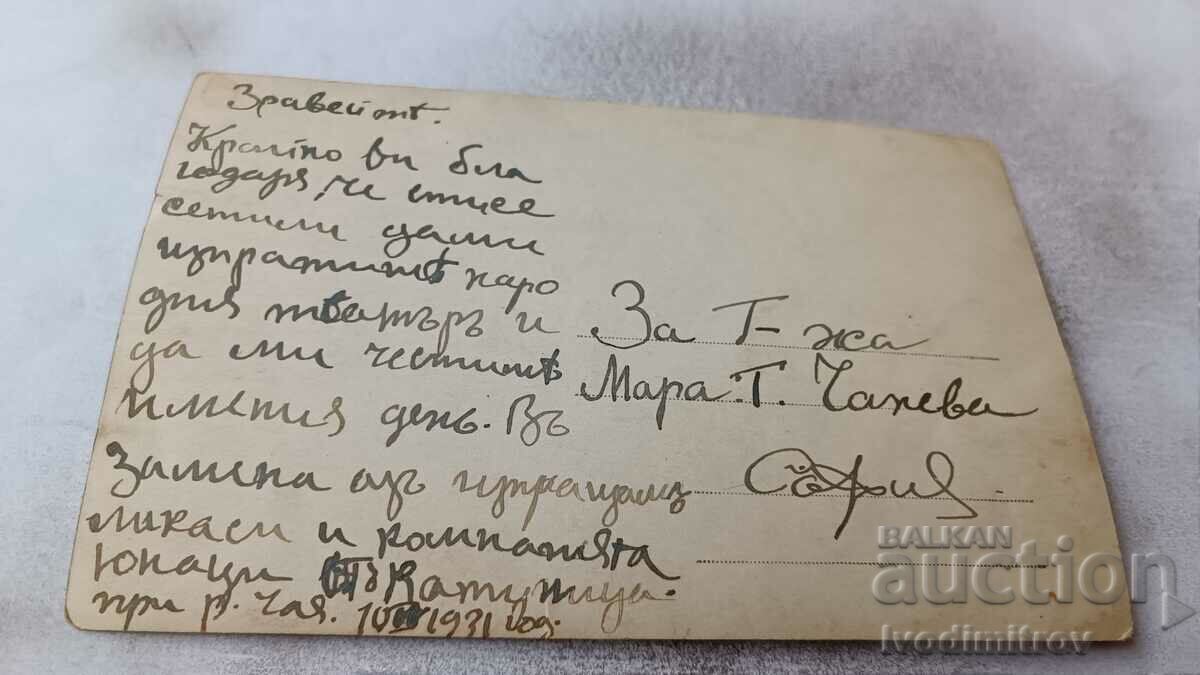 Зравейтѣ.
Крайно ви бла
годаря, че стисе
сетили дами
изпратитѣ наро
дния театъръ и
да ми честитѣ
имения день. Въ
Замена азъ изпращамъ
ликаси и компанията
юнаци отъ Катуница
при р. Чая. 1931 год.
За Г-жа
Мара Г. Чакева
София
BALKAN
auction
Ivodimitrov